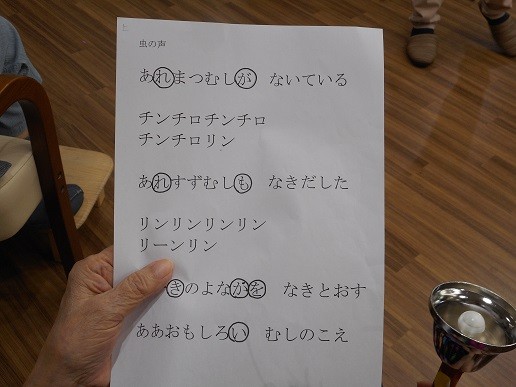 虫の声
あれまつむしが　ないている
チンチロチンチロ
チンチロリン
あれすずむしも　なきだした
リンリンリンリン
リーンリン
きのよながを　なきとおす
ああおもしろい　むしのこえ